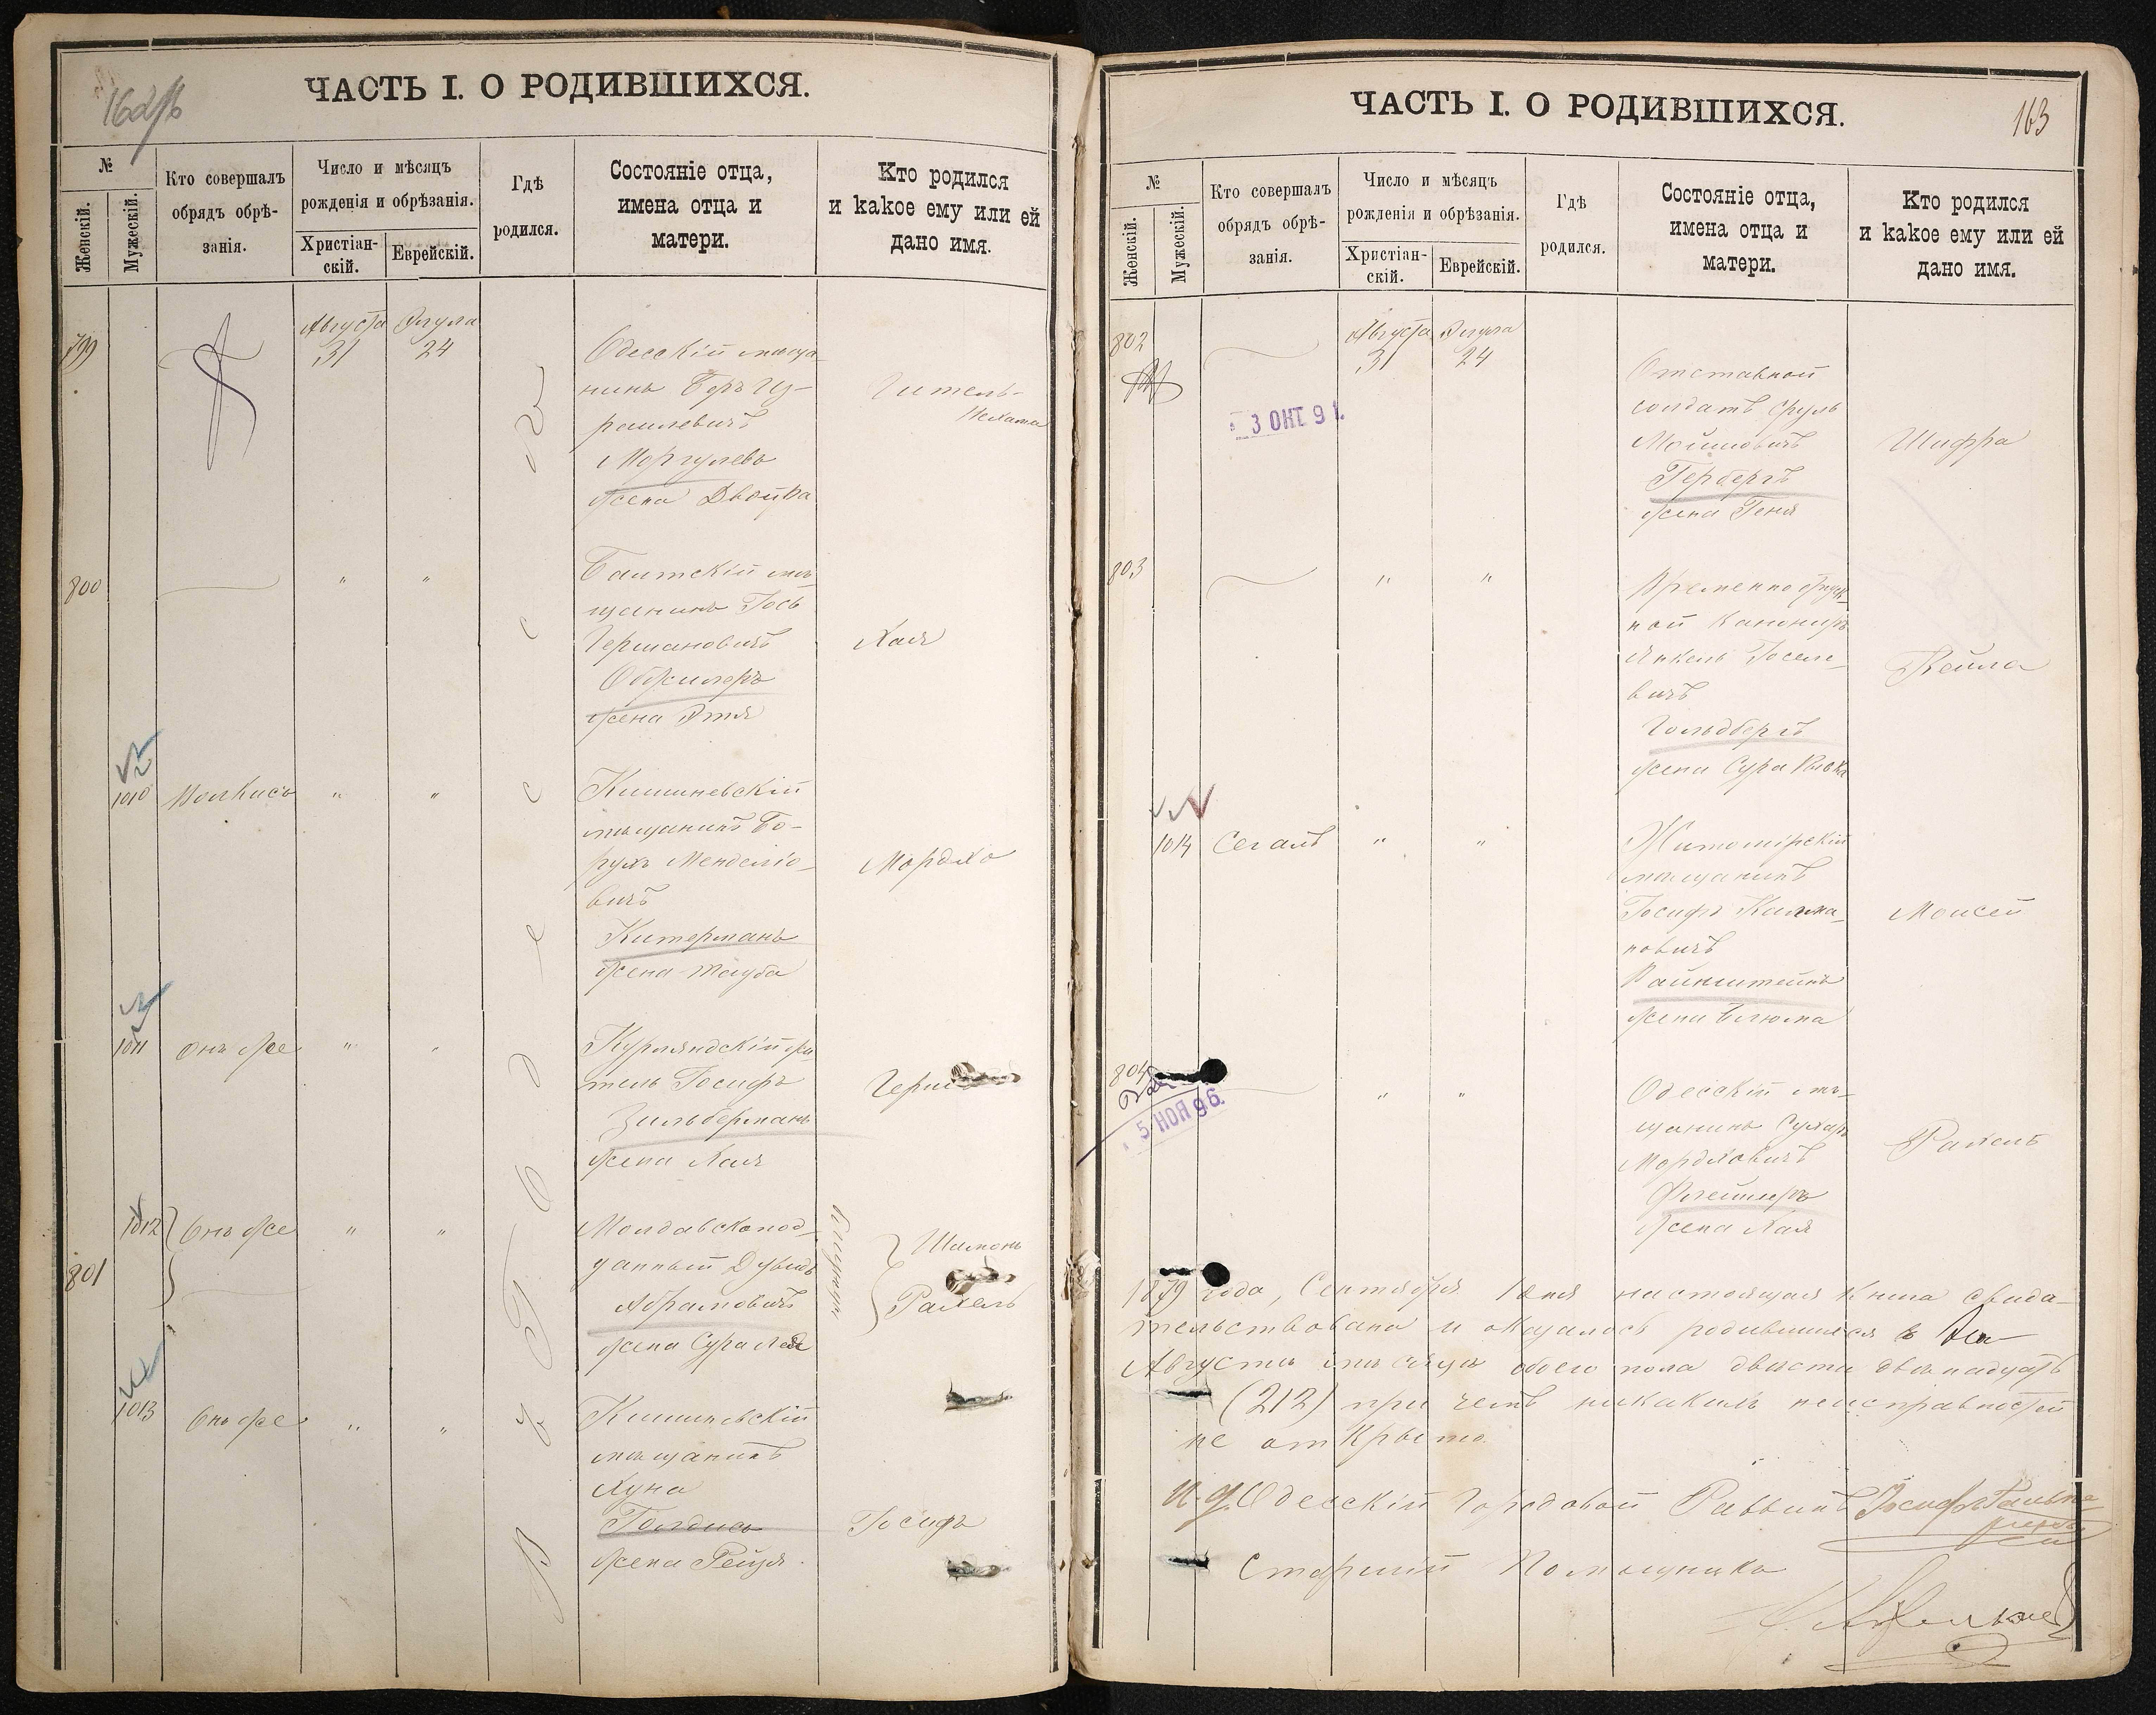 ЧАСТЬ I. О РОДИВШИХСЯ.
№
Женскій.
Мужескій.
Кто совершалъ
обрядъ обрѣ-
занія.
Число и мѣсяцъ
рожденія и обрѣзанія.
Христіан-
скій.
Еврейскій.
Гдѣ
родился.
Состояніе отца,
имена отца и
матери.
Кто родился
и какое ему или ей
дано имя.
799
Августа Элула
31 24
Одесскій мѣща-
нинъ Беръ Из-
раилевичъ
Моргулевъ
жена Двойра
Гитель-
Нехама
800
" "
Балтскій мѣ-
щанинъ Іось
Германовичъ
жена Этя
Хая
1010
" "
Кишиневскій
мѣщанинъ Бо-
рухъ Менделіо-
вичъ
Китерманъ
жена Тауба
Мордхо
1011
Онъ же " "
Курляндскій жи-
тель Іосифъ
Зильберманъ
жена Хая
1012
Онъ же " "
801
Молдавскопод-
данный Дувидъ
Абрамовичъ
жена Сура Лея
Близнецы
Шимонъ
Рахель
1013
Онъ же " "
Кишиневскій
мѣщанинъ
Хуна
жена Рейзя.
Іосифъ
Въ Городѣ Одессѣ
ЧАСТЬ I. О РОДИВШИХСЯ.
163
№
Женскій.
Мужескій.
Кто совершалъ
обрядъ обрѣ-
занія.
Число и мѣсяцъ
рожденія и обрѣзанія.
Христіан-
скій.
Еврейскій.
Гдѣ
родился.
Состояніе отца,
имена отца и
матери.
Кто родился
и какое ему или ей
дано имя.
802
Августа Элула
31 24
3 ОКТ 91.
Отставной
солдатъ Сруль
Мошковичъ
Гербергъ
жена Геня
Шифра
803
" "
Временно отпуск-
ной канониръ
Янкель Іоселе-
вичъ
Гольдбергъ
жена Сура Ривка
Бейла
1014
Сегаль " "
Житомірскій
мѣщанинъ
Іосифъ Калма-
новичъ
Вайнштейнъ
жена Блюма
Моисей
804
5 НОЯ 96.
" "
Одесскій мѣ-
щанинъ Сухаръ
Мордковичъ
Флейшеръ
жена Хая
Рахель
1879 года, Сентября 1 дня настоящая книга свидѣ-
тельствована и оказалось родившихся въ
Августѣ мѣсяцѣ обоего пола двѣсти двѣнадцать
(212) при чемъ никакихъ неисправностей
не открыто.
И. д. Одесскій Городовой Раввинъ
Старшій Помощникъ